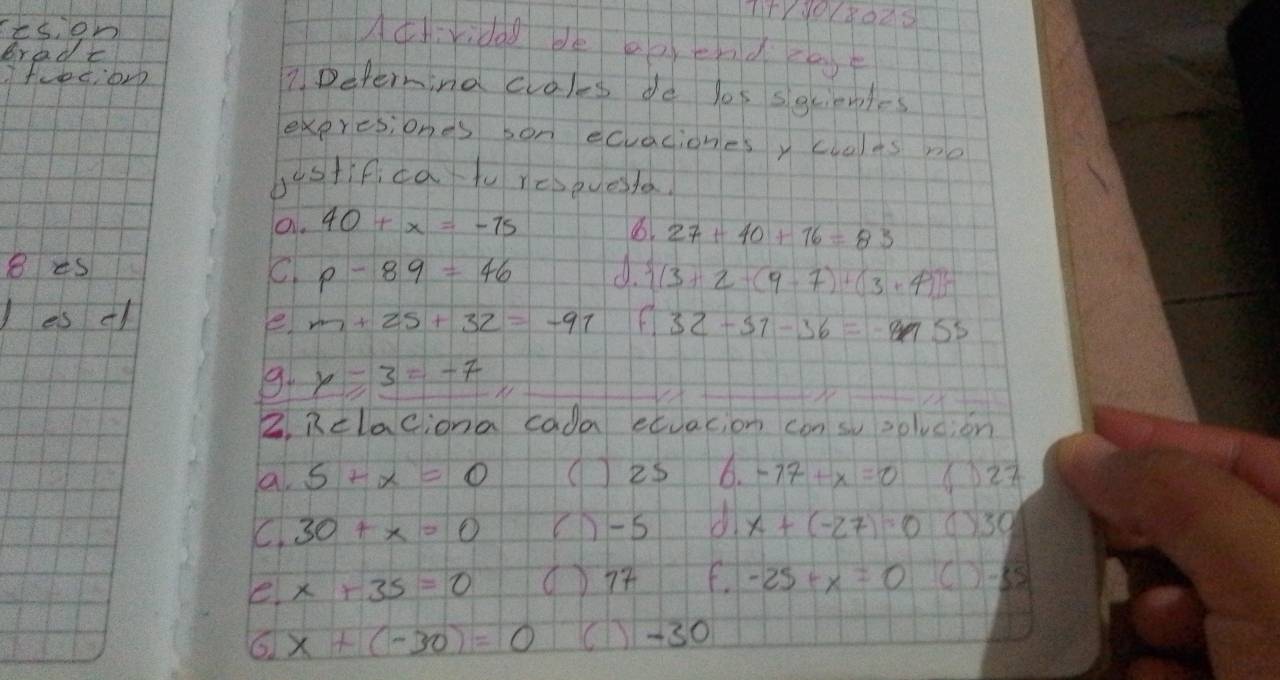 esion
8 es
es el
17/10/2025
Actividad de aprendizaje
1. Determina cuales de los siguientes
expresiones son ecuaciones y cuales no
justifica tu respuesta.
a. 40 + x = -15 b. 27 + 40 + 16 = 83
c. p - 89 = 46 d. {(3 + 2 - (9 - 7) + (3 + 4)]}
e. m + 25 + 32 = -91 f. 32 - 51 - 36 = - 55
g. y - 3 = -7
2. Relaciona cada ecuacion con su solución
a. 5 + x = 0 ( ) 25 b. -17 + x = 0 ( ) 27
c. 30 + x = 0 ( ) -5 d. x + (-27) = 0 ( ) 30
e. x + 35 = 0 ( ) 17 f. -25 + x = 0 ( ) -35
G. x + (-30) = 0 ( ) -30